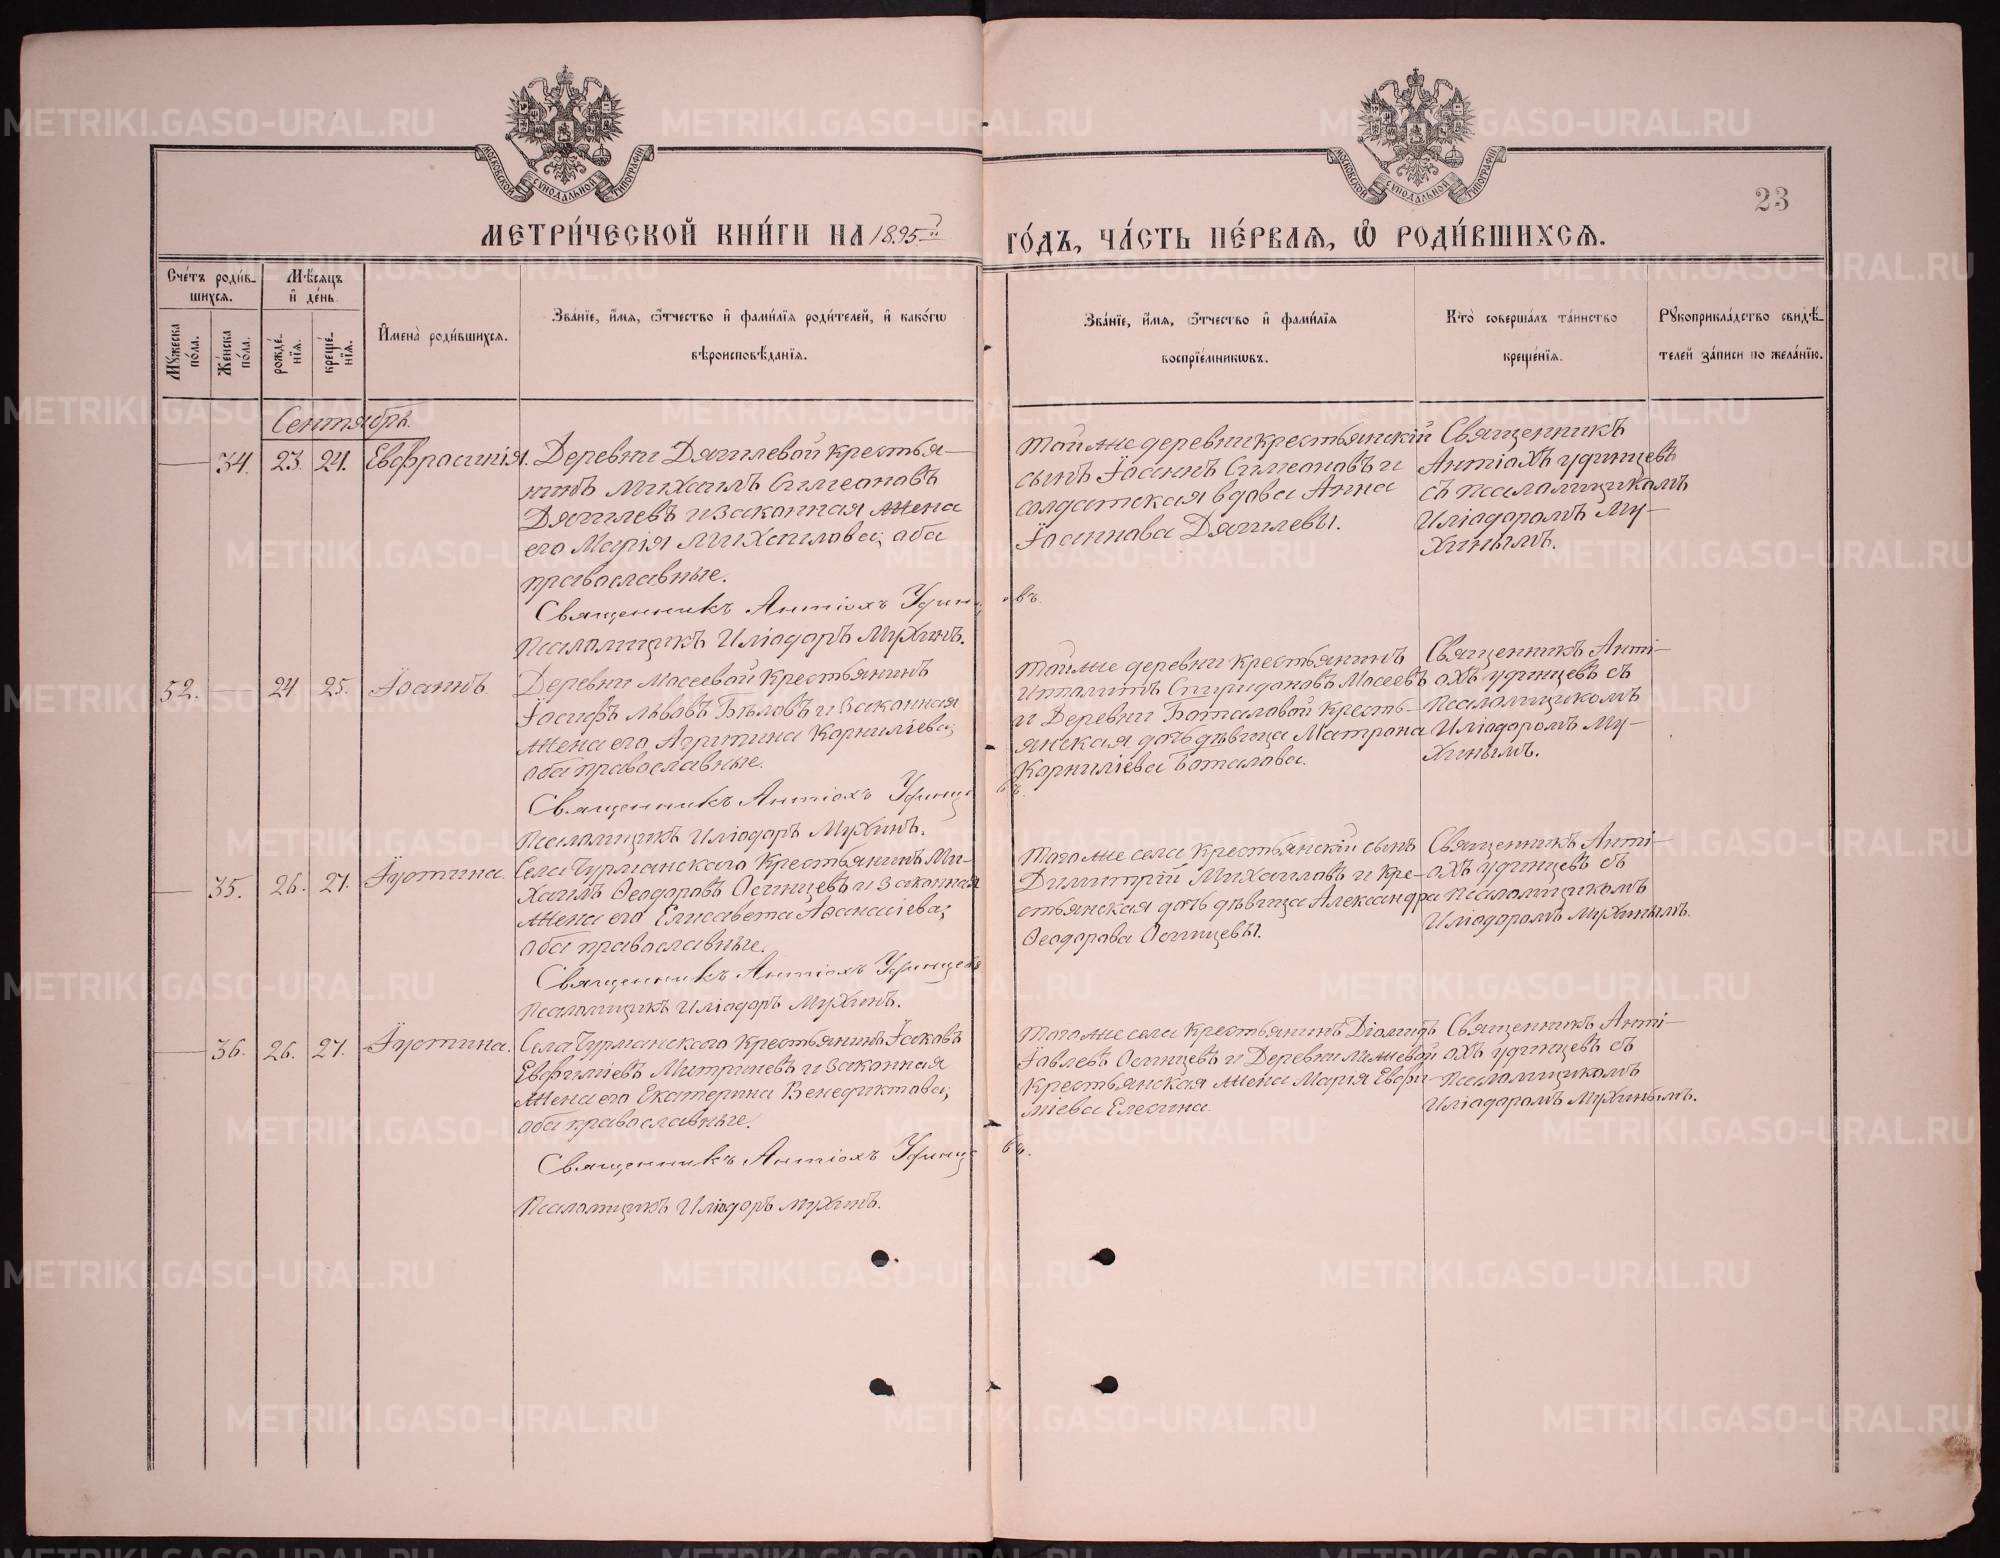 МОСКОВСКОЙ СУНОДАЛЬНОЙ ТИПОГРАФІИ
МОСКОВСКОЙ СУНОДАЛЬНОЙ ТИПОГРАФІИ
23
МЕТРИ́ЧЕСКОЙ КНИ́ГИ НА 1895й
ГО́ДЪ, ЧА́СТЬ ПЕ́РВАѦ, Ѡ РОДИ́ВШИХСѦ.
Сче́тъ роди́в-
шихсѧ.
Мꙋжеска по́ла.
Же́нска по́ла.
Мѣ́сѧцъ
и де́нь.
рожде́-
нїѧ.
креще́-
нїѧ.
Имена̀ роди́вшихсѧ.
Зва́нїе, и́мѧ, ѻ́тчество и фами́лїѧ роди́телей, и како́гѡ
вѣроисповѣ́данїѧ.
Зва́нїе, и́мѧ, ѻ́тчество и фами́лїѧ
воспрїе́мникѡвъ.
Кто̀ соверша́лъ та́инство
креще́нїѧ.
Рꙋкоприкла́дство свидѣ́-
телей за́писи по жела́нїю.
Сентябрь.
— 34. 23. 24. Евфросинія.
Деревни Дягилевой крестья-
нинъ Михаилъ Симеоновъ
Дягилевъ и законная жена
его Марія Михаилова; оба
православные.
Священникъ Антіохъ Удинцовъ.
Псаломщикъ Иліодоръ Мухинъ.
Той же деревни крестьянскій
сынъ Іоаннъ Симеоновъ и
солдатская вдова Анна
Іоаннова Дягилевы.
Священникъ
Антіохъ Удинцевъ
съ псаломщикомъ
Иліодоромъ Му-
хинымъ.
52. — 24 25. Іоаннъ.
Деревни Мосеевой крестьянинъ
Іосифъ Львовъ Бѣловъ и законная
жена его Агрипина Корниліева;
оба православные.
Священникъ Антіохъ Удинцевъ.
Псаломщикъ Иліодоръ Мухинъ.
Той же деревни крестьянинъ
Ипполитъ Спиридоновъ Мосеевъ
и Деревни Боталовой кресть-
янская дочь дѣвица Матрона
Корниліева Боталова.
Священникъ Анті-
охъ Удинцевъ съ
псаломщикомъ
Иліодоромъ Му-
хинымъ.
— 35. 26. 27. Іустина.
Села Чурманскаго крестьянинъ Ми-
хаилъ Ѳеодоровъ Осинцевъ и законная
жена его Елисавета Аѳанасіева;
оба православные.
Священникъ Антіохъ Удинцевъ
Псаломщикъ Иліодоръ Мухинъ.
Того же села крестьянскій сынъ
Димитрій Михаиловъ и кре-
стьянская дочь дѣвица Александра
Ѳеодорова Осинцевы.
Священникъ Анті-
охъ Удинцевъ съ
псаломщикомъ
Иліодоромъ Мухинымъ.
— 36. 26. 27. Іустина.
Села Чурманскаго крестьянинъ Іаковъ
Евфиміевъ и законная
жена его Екатерина Венедиктова;
оба православные.
Священникъ Антіохъ Удинцевъ.
Псаломщикъ Иліодоръ Мухинъ.
Того же села крестьянинъ Діомидъ
Іовлевъ Осинцевъ и Деревни
крестьянская жена Марія Евфи-
міева
Священникъ Анті-
охъ Удинцевъ съ
псаломщикомъ
Иліодоромъ Мухинымъ.
METRIKI.GASO-URAL.RU